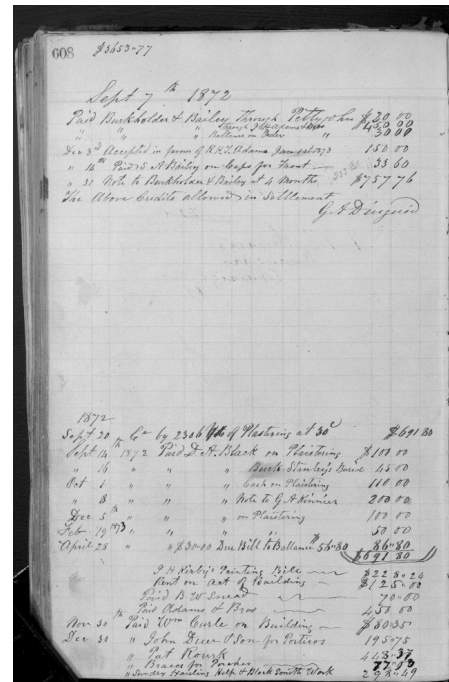 608 $3653-77
Sept 7th 1872
Paid Burkholder & Bailey Through Pettyjohn $20 00
" " " Through J H Adams $450 00
" " " Ballance on Order " 30 00
Dec 3rd Accepted in favor of R.H.T. Adams Jan 1st 1873 150 00
" 14th Paid S A Bailey on Caps for Front — 33 60
" 31 Note to Burkholder & Bailey at 4 Months, $757 76
The Above Credits allowed in Settlement
G. A Diuguid
1872
Sept 20th Cr by 2306 Yds of Plastering at 30c $691 80
Sept 14th 1872 Paid D. A. Black on Plaistering $100 00
" 16 " " " Buck Stanley's 45 00
Oct 1 " " " Cash on Plaistering 110 00
" 8 " " " Note to G A Kinnier 200 00
Dec 5th " " " on Plaistering 100 00
Feb 19th 1873 " " " 50 00
April 28 " " $30-00 Due Bill to Ballance $56-80 86-80
$691 80
J. H. Kirby's Painting Bill $228-24
Rent on act of Building $125-00
Paid B W Snead 70-00
Paid Adams & Bros 450 00
Nov 30th Paid Wm Carle on Building $80 35
Dec 30 " John Due & Son for Porticos 195-75
" Pat Rourk 448-37
" Braces for Porches 77-03
" Sunday Hauling Help & Black Smith Work 298-49